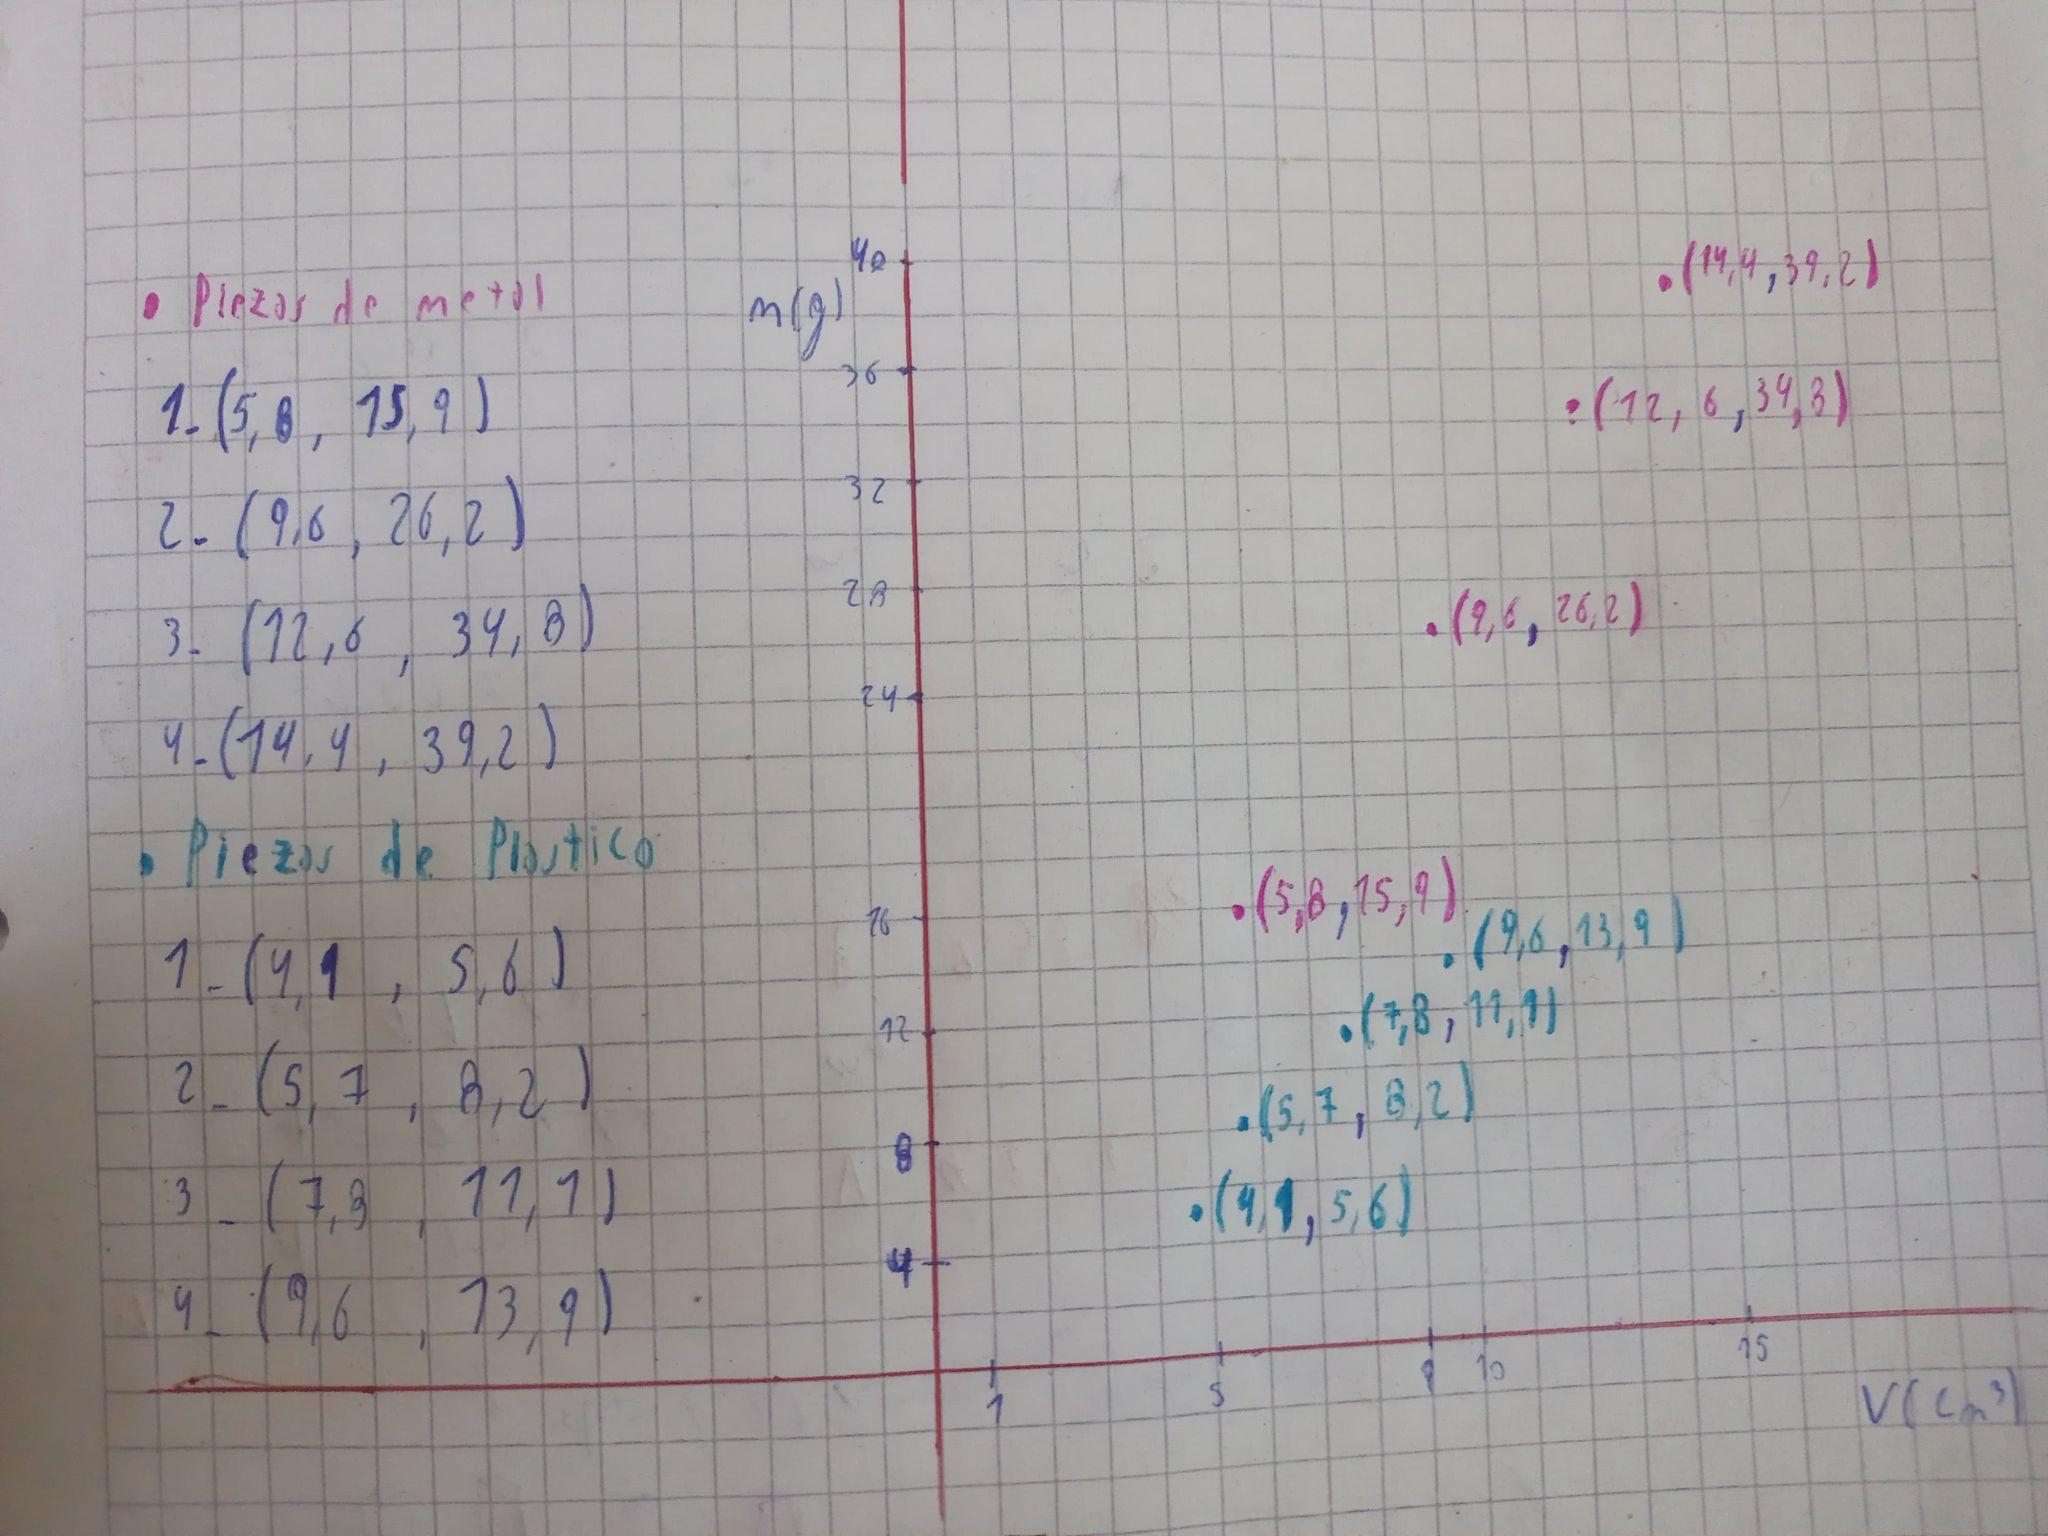 • Piezas de metal
1-(5,8 , 15,9)
2-(9,6 , 26,2)
3-(12,6 , 34,8)
4-(14,4 , 39,2)
• Piezas de Plastico
1-(4,1 , 5,6)
2-(5,7 , 8,2)
3-(7,8 , 11,1)
4-(9,6 , 13,9)
m(g)
40
36
32
28
24
16
12
8
4
1
5
9
10
15
V(cm³)
•(14,4,39,2)
•(12,6,34,8)
•(9,6,26,2)
•(5,8,15,9)
•(9,6,13,9)
•(7,8,11,1)
•(5,7,8,2)
•(4,1,5,6)